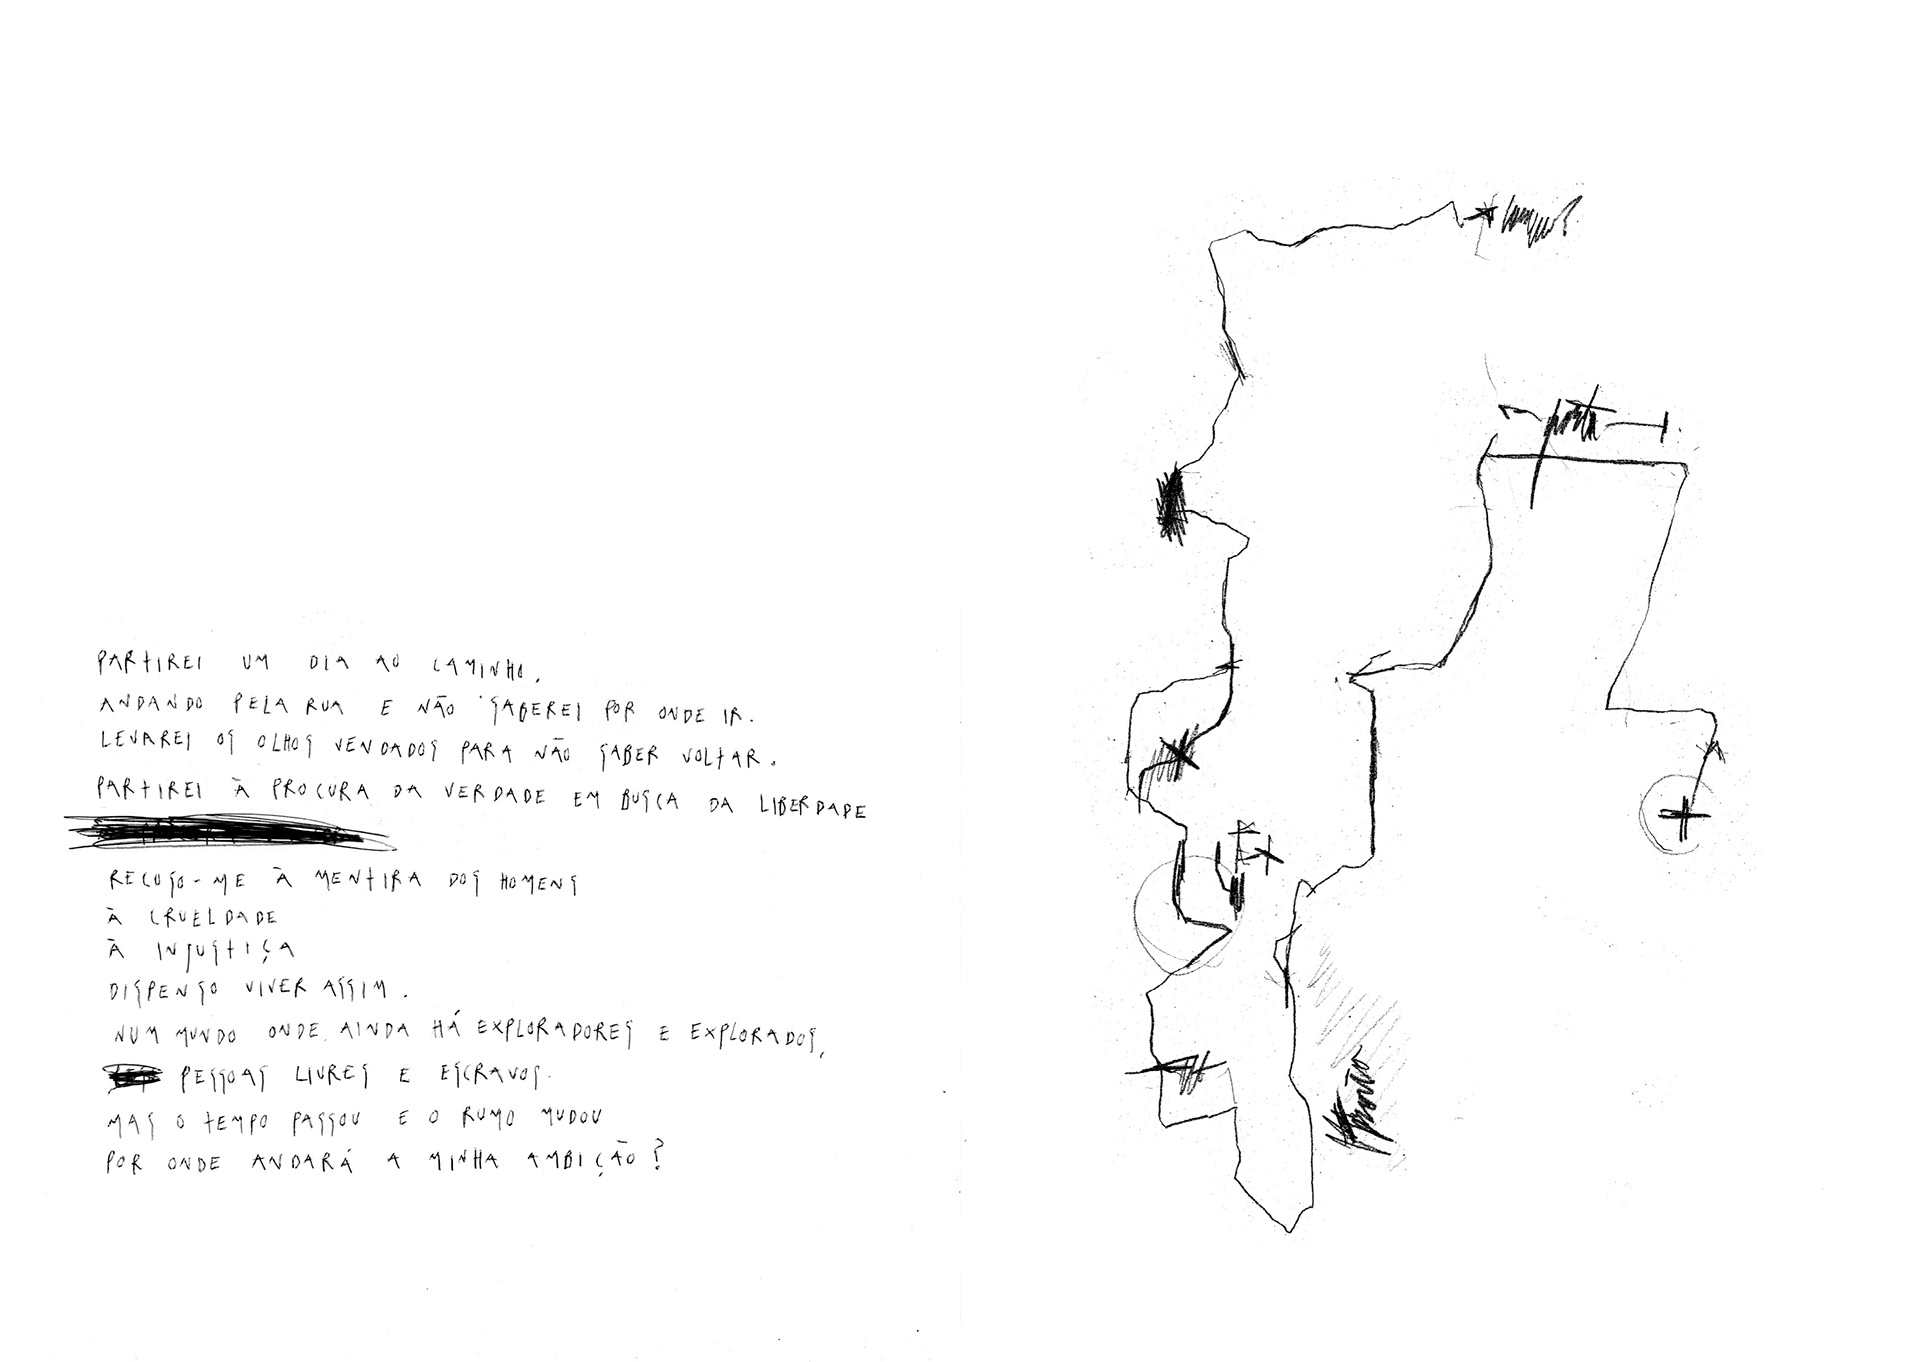 PARTIREI UM DIA AO CAMINHO.
ANDANDO PELA RUA E NÃO SABEREI POR ONDE IR.
LEVAREI OS OLHOS VENDADOS PARA NÃO SABER VOLTAR.
PARTIREI À PROCURA DA VERDADE EM BUSCA DA LIBERDADE
RECUSO-ME À MENTIRA DOS HOMENS
À CRUELDADE
À INJUSTIÇA
DISPENSO VIVER ASSIM.
NUM MUNDO ONDE AINDA HÁ EXPLORADORES E EXPLORADOS,
PESSOAS LIVRES E ESCRAVOS.
MAS O TEMPO PASSOU E O RUMO MUDOU
POR ONDE ANDARÁ A MINHA AMBIÇÃO?
porta